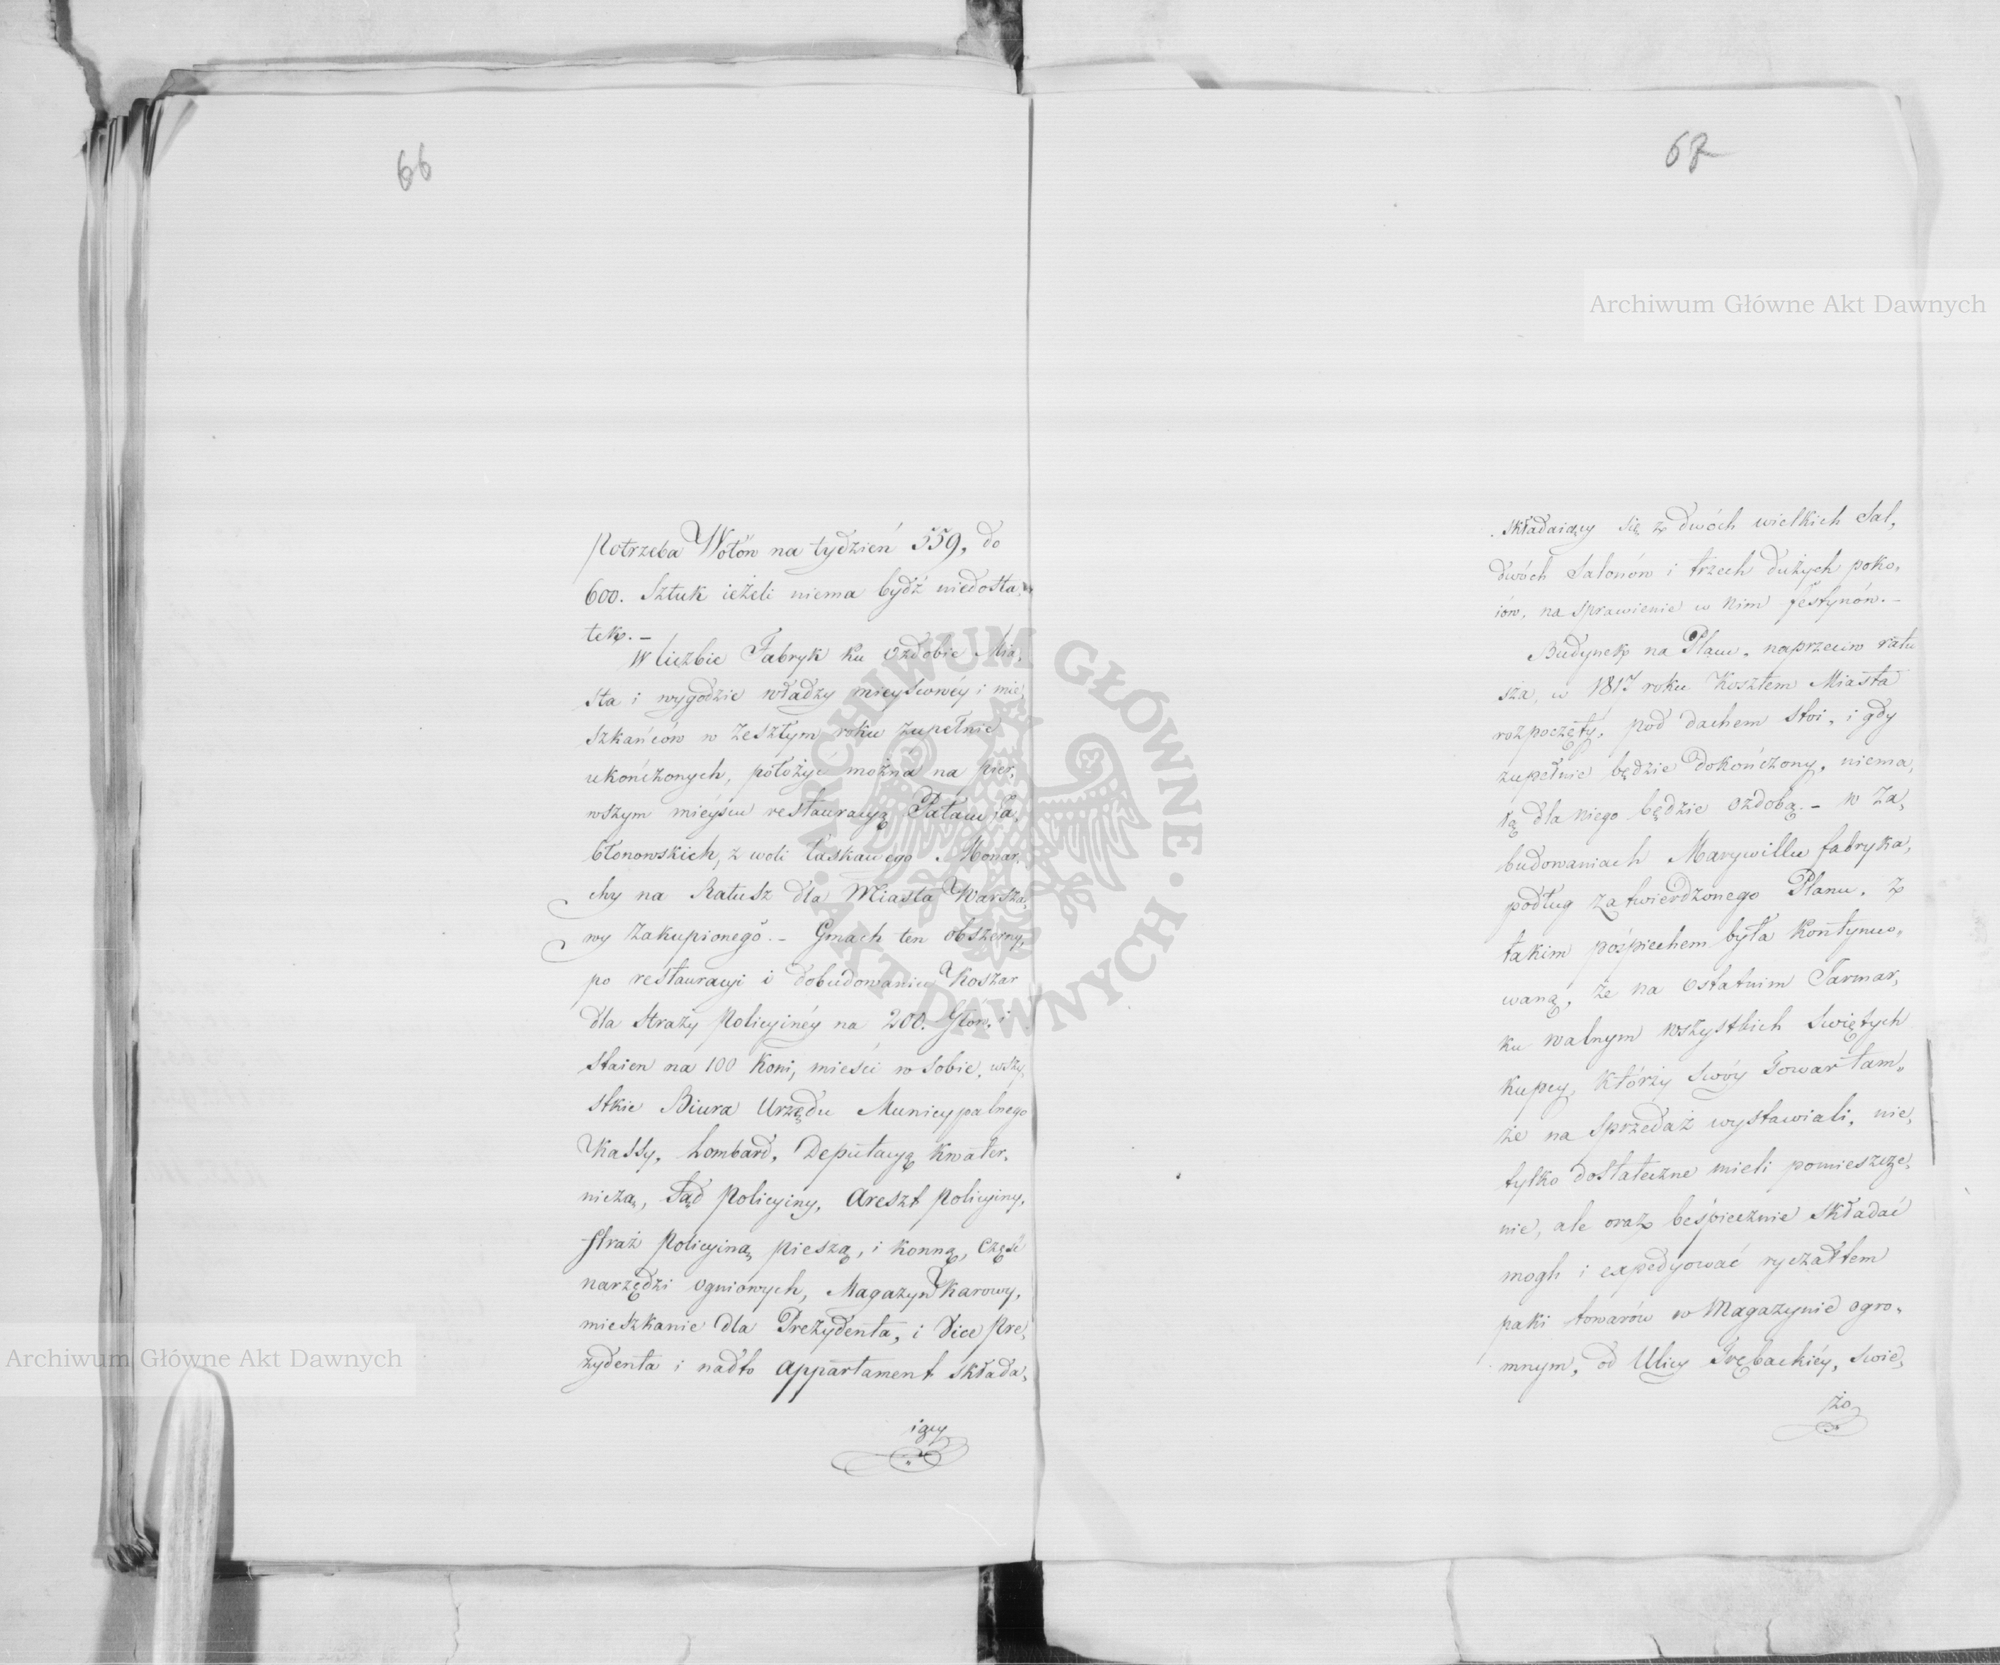 66
potrzeba Wołów na tydzień 559, do
600. Sztuk ieżeli niema bydź niedosta,
tek. –
W liczbie Fabryk ku ozdobie Mia,
sta i wygodzie władzy mieyscowéy i mie,
szkańców w zeszłym roku zupełnie
ukończonych, położyć można na pier,
wszym mieyscu restauracyą Pałacu Ja,
błonowskich, z woli łaskawego Monar,
chy na Ratusz dla Miasta Warsza,
wy zakupionego. – Gmach ten obszerny,
po restauracyi i dobudowaniu Koszar
dla Straży Policyinéy na 200. Głów, i
staien na 100 Koni, mieści w sobie, wszy,
stkie Biura Urzędu Municypalnego
Kassy, Lombard, Deputacyą Kwater,
niczą, Sąd Policyiny, Areszt Policyiny,
Straż Policyiną pieszą, i konną, Część
narzędzi ogniowych, Magazyn Karowy,
mieszkanie dla Prezydenta, i Vice Pre,
zydenta i nadto appartament składa,
iący
67
składaiący się z dwóch wielkich Sal,
dwóch Salonów i trzech dużych poko,
iów, na sprawienie w nim festynów. –
Budynek na Placu, naprzeciw ratu
sza, w 1817 roku Kosztem Miasta
rozpoczęty, pod dachem stoi, i gdy
zupełnie będzie dokończony, niema,
łą dla niego będzie ozdobą. – W Za,
budowaniach Marywillu fabryka,
podług zatwierdzonego Planu, z
takim pośpiechem była kontynuo,
waną, że na ostatnim Jarmar,
ku walnym wszystkich Swiętych
kupcy, którzy swóy Towar tam,
że na sprzedaż wystawiali, nie,
tylko dostateczne mieli pomieszcze,
nie, ale oraz bespiecznie składać
mogli i expedyować ryczałtem
paki towarów w Magazynie ogro,
mnym, od Ulicy Trębackiéy, świe,
żo
Archiwum Główne Akt Dawnych
Archiwum Główne Akt Dawnych
ARCHIWUM GŁÓWNE AKT DAWNYCH